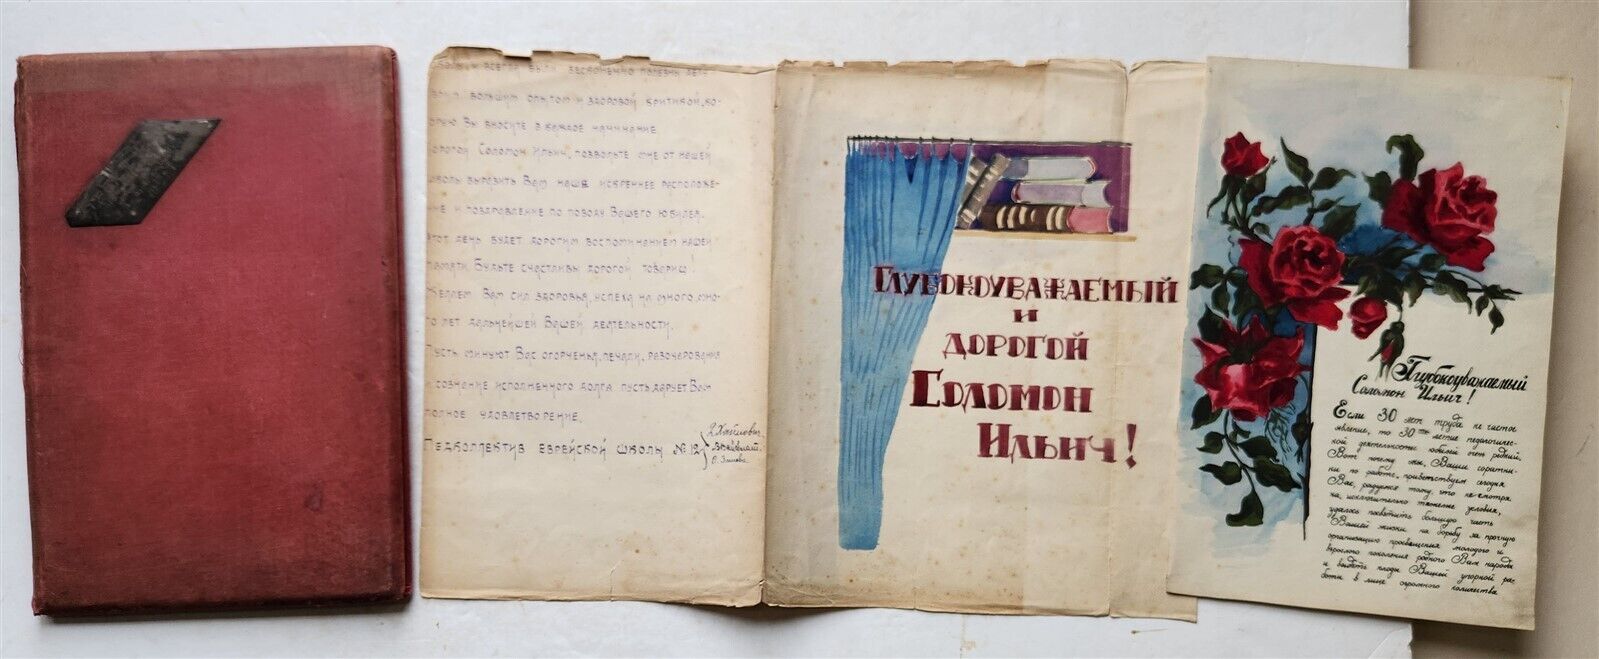 всегда были бесконечно полезны
большим опытом и здоровой критикой, ко-
Вы вносите в каждое начинание
Соломон Ильич, позвольте мне от нашей
выразить Вам наше искреннее расположе-
и поздравление по поводу Вашего юбилея.
день будет дорогим воспоминанием нашей
памяти. Будьте счастливы дорогой товарищ!
Желаем Вам сил здоровья, успеха на много, мно-
го лет дальнейшей Вашей деятельности.
Пусть минуют Вас огорченья, печали, разочарования
и сознание исполненного долга пусть дарует Вам
полное удовлетворение.
Педколлектив еврейской школы № 12
Глубокоуважаемый
и
дорогой
Соломон
Ильич!
Глубокоуважаемый
Соломон Ильич!
Если 30 лет труда не частое
явление, то 30-ти летие педагогичес-
кой деятельности юбилей очень редкий.
Вот почему мы, Ваши соратни-
ки по работе, приветствуем сегодня
Вас, радуемся тому, что не смотря
на исключительно тяжелые условия,
удалось посвятить большую часть
Вашей жизни на борьбу за прочную
организацию просвещения молодого и
взрослого поколения родного Вам народа
и видеть плоды Вашей упорной ра-
боты в лице огромного количества